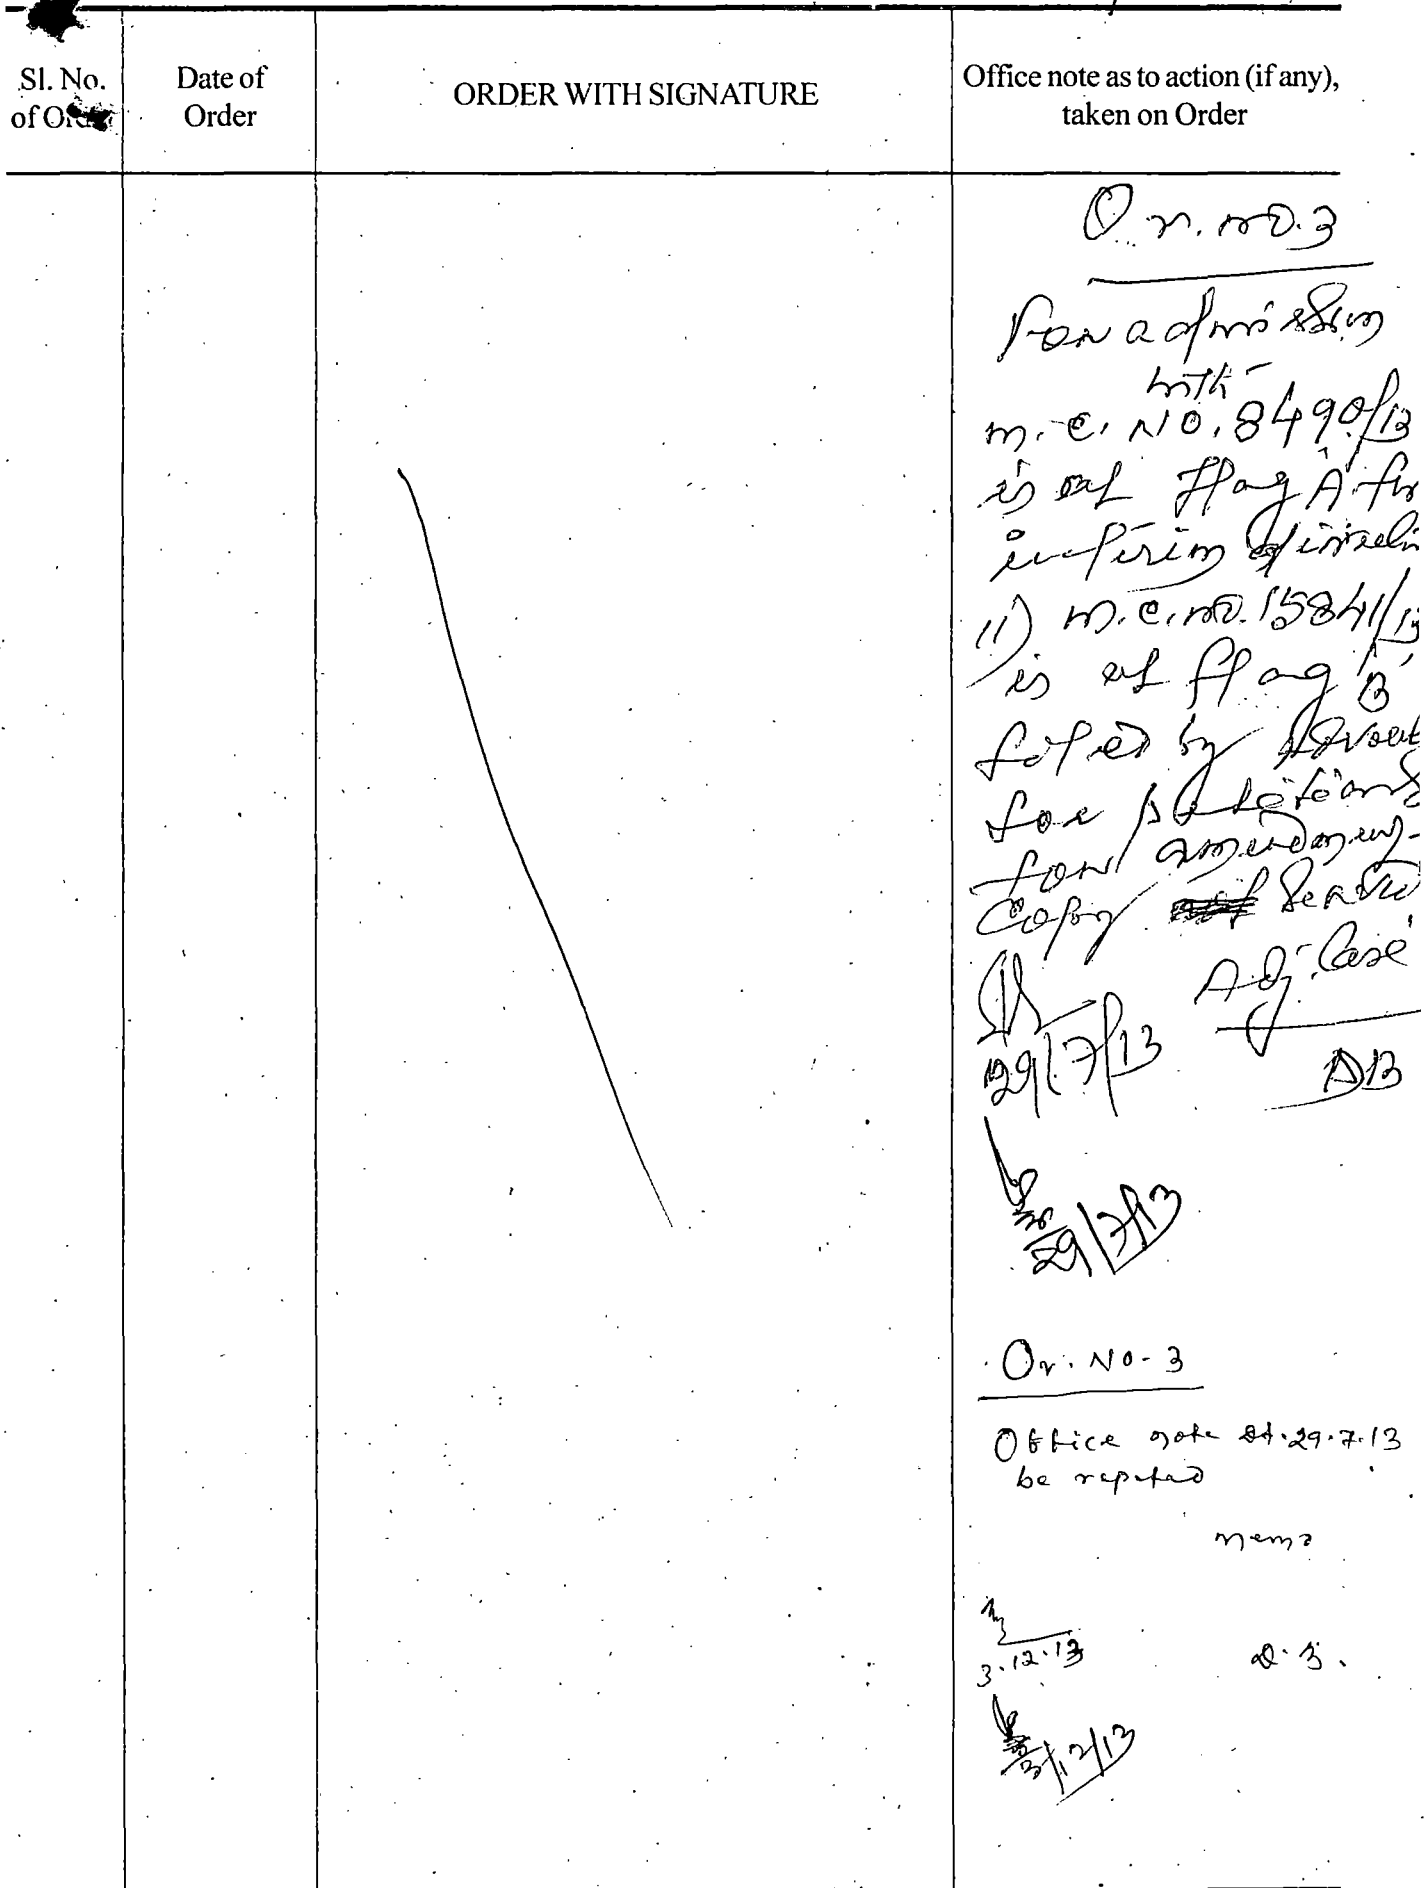 Sl. No.
of Order
Date of
Order
ORDER WITH SIGNATURE
Office note as to action (if any),
taken on Order
Or. no. 3
For admission
with
m.c. NO. 8490/13
is at flag A for
interim
11) m.c. no. 15841/13
is at flag 'B'
filed by Advocat
for petitioner
for amendment
Copy
Adj. Case
29/7/13
DB
29/7/13
Or. No-3
Office note dt. 29.7.13
be repeted
memo
3.12.13
D.B.
3/12/13